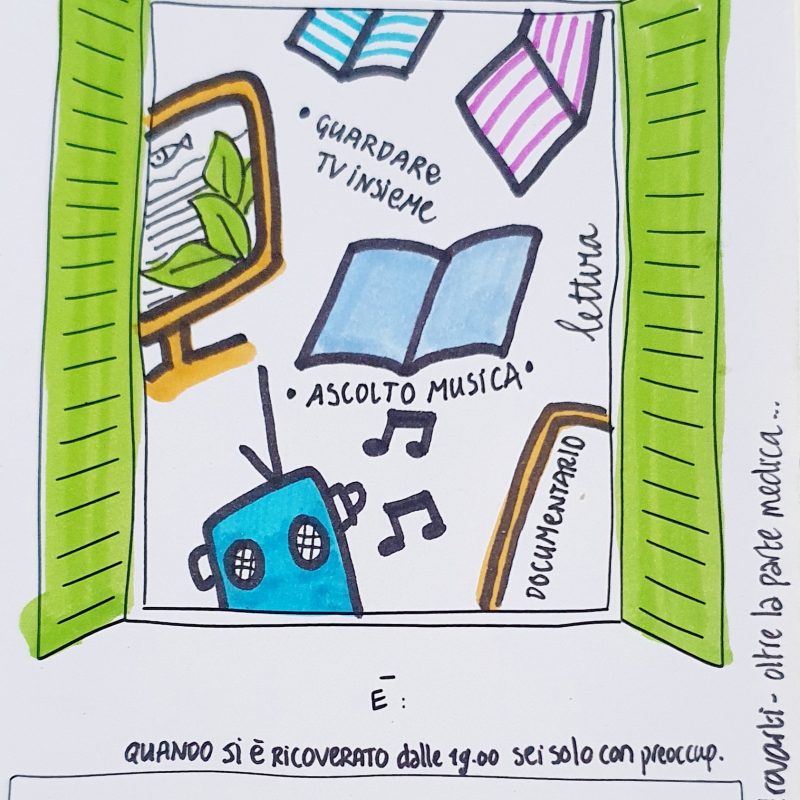 • GUARDARE
TV iNSiEME
lettura
• ASCOLTO MUSICA •
DOCUMENTARIO
È :
QUANDO Si È RICOVERATO dalle 19.00 sei solo con preoccup.
- oltre la parte medica...